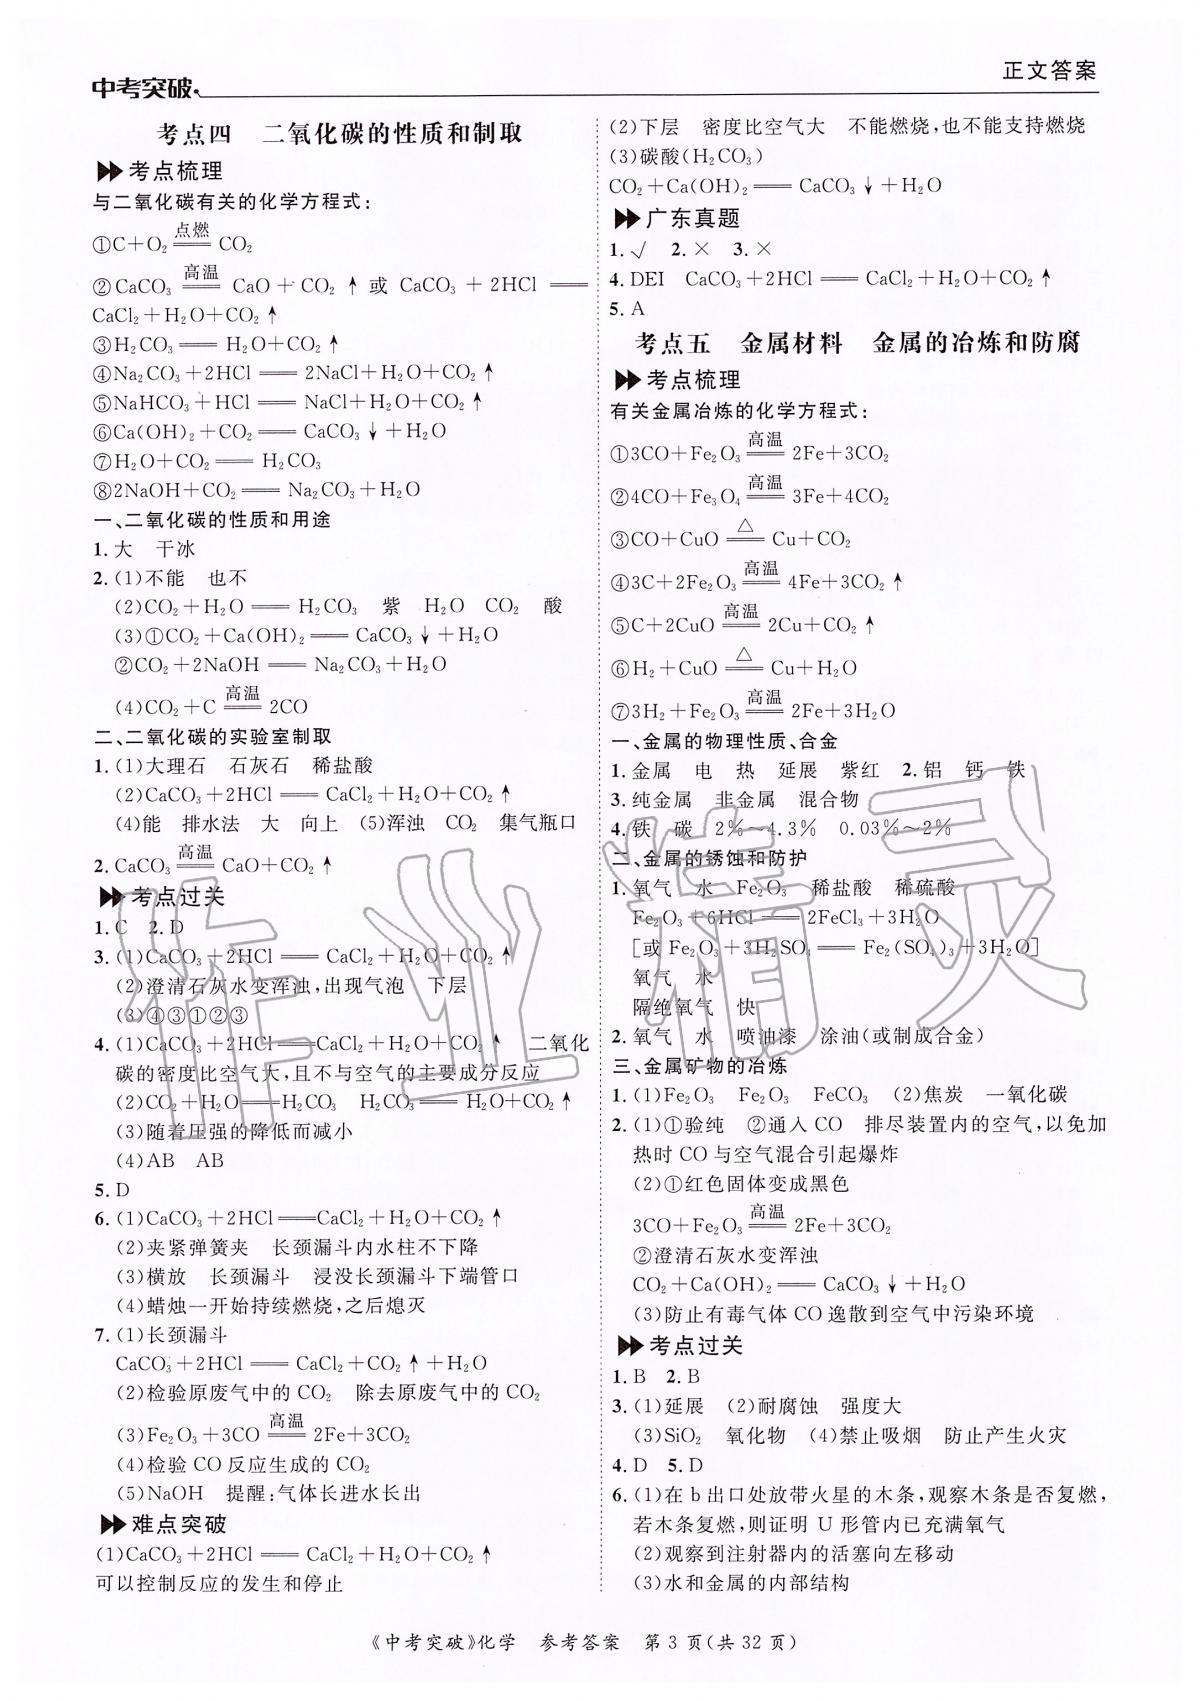 中考突破
正文答案
考点四 二氧化碳的性质和制取
考点梳理
与二氧化碳有关的化学方程式:
①C+O₂ ══点燃══ CO₂
②CaCO₃ ══高温══ CaO+CO₂↑ 或 CaCO₃+2HCl ══
CaCl₂+H₂O+CO₂↑
③H₂CO₃ ══ H₂O+CO₂↑
④Na₂CO₃+2HCl ══ 2NaCl+H₂O+CO₂↑
⑤NaHCO₃+HCl ══ NaCl+H₂O+CO₂↑
⑥Ca(OH)₂+CO₂ ══ CaCO₃↓+H₂O
⑦H₂O+CO₂ ══ H₂CO₃
⑧2NaOH+CO₂ ══ Na₂CO₃+H₂O
一、二氧化碳的性质和用途
1. 大 干冰
2. (1)不能 也不
(2)CO₂+H₂O ══ H₂CO₃ 紫 H₂O CO₂ 酸
(3)①CO₂+Ca(OH)₂ ══ CaCO₃↓+H₂O
②CO₂+2NaOH ══ Na₂CO₃+H₂O
(4)CO₂+C ══高温══ 2CO
二、二氧化碳的实验室制取
1. (1)大理石 石灰石 稀盐酸
(2)CaCO₃+2HCl ══ CaCl₂+H₂O+CO₂↑
(4)能 排水法 大 向上 (5)浑浊 CO₂ 集气瓶口
2. CaCO₃ ══高温══ CaO+CO₂↑
考点过关
1. C 2. D
3. (1)CaCO₃+2HCl ══ CaCl₂+H₂O+CO₂↑
(2)澄清石灰水变浑浊,出现气泡 下层
(3)④③①②③
4. (1)CaCO₃+2HCl ══ CaCl₂+H₂O+CO₂↑ 二氧化
碳的密度比空气大,且不与空气的主要成分反应
(2)CO₂+H₂O ══ H₂CO₃ H₂CO₃ ══ H₂O+CO₂↑
(3)随着压强的降低而减小
(4)AB AB
5. D
6. (1)CaCO₃+2HCl ══ CaCl₂+H₂O+CO₂↑
(2)夹紧弹簧夹 长颈漏斗内水柱不下降
(3)横放 长颈漏斗 浸没长颈漏斗下端管口
(4)蜡烛一开始持续燃烧,之后熄灭
7. (1)长颈漏斗
CaCO₃+2HCl ══ CaCl₂+CO₂↑+H₂O
(2)检验原废气中的 CO₂ 除去原废气中的 CO₂
(3)Fe₂O₃+3CO ══高温══ 2Fe+3CO₂
(4)检验 CO 反应生成的 CO₂
(5)NaOH 提醒:气体长进水长出
难点突破
(1)CaCO₃+2HCl ══ CaCl₂+H₂O+CO₂↑
可以控制反应的发生和停止
(2)下层 密度比空气大 不能燃烧,也不能支持燃烧
(3)碳酸(H₂CO₃)
CO₂+Ca(OH)₂ ══ CaCO₃↓+H₂O
广东真题
1. √ 2. × 3. ×
4. DEI CaCO₃+2HCl ══ CaCl₂+H₂O+CO₂↑
5. A
考点五 金属材料 金属的冶炼和防腐
考点梳理
有关金属冶炼的化学方程式:
①3CO+Fe₂O₃ ══高温══ 2Fe+3CO₂
②4CO+Fe₃O₄ ══高温══ 3Fe+4CO₂
③CO+CuO ══△══ Cu+CO₂
④3C+2Fe₂O₃ ══高温══ 4Fe+3CO₂↑
⑤C+2CuO ══高温══ 2Cu+CO₂↑
⑥H₂+CuO ══△══ Cu+H₂O
⑦3H₂+Fe₂O₃ ══高温══ 2Fe+3H₂O
一、金属的物理性质、合金
1. 金属 电 热 延展 紫红 2. 铝 钙 铁
3. 纯金属 非金属 混合物
4. 铁 碳 2%~4.3% 0.03%~2%
二、金属的锈蚀和防护
1. 氧气 水 Fe₂O₃ 稀盐酸 稀硫酸
Fe₂O₃+6HCl ══ 2FeCl₃+3H₂O
[或 Fe₂O₃+3H₂SO₄ ══ Fe₂(SO₄)₃+3H₂O]
氧气 水
隔绝氧气 快
2. 氧气 水 喷油漆 涂油(或制成合金)
三、金属矿物的冶炼
1. (1)Fe₂O₃ Fe₂O₃ FeCO₃ (2)焦炭 一氧化碳
2. (1)①验纯 ②通入 CO 排尽装置内的空气,以免加
热时 CO 与空气混合引起爆炸
(2)①红色固体变成黑色
3CO+Fe₂O₃ ══高温══ 2Fe+3CO₂
②澄清石灰水变浑浊
CO₂+Ca(OH)₂ ══ CaCO₃↓+H₂O
(3)防止有毒气体 CO 逸散到空气中污染环境
考点过关
1. B 2. B
3. (1)延展 (2)耐腐蚀 强度大
(3)SiO₂ 氧化物 (4)禁止吸烟 防止产生火灾
4. D 5. D
6. (1)在 b 出口处放带火星的木条,观察木条是否复燃,
若木条复燃,则证明 U 形管内已充满氧气
(2)观察到注射器内的活塞向左移动
(3)水和金属的内部结构
作业精灵
《中考突破》化学 参考答案 第 3 页(共 32 页)